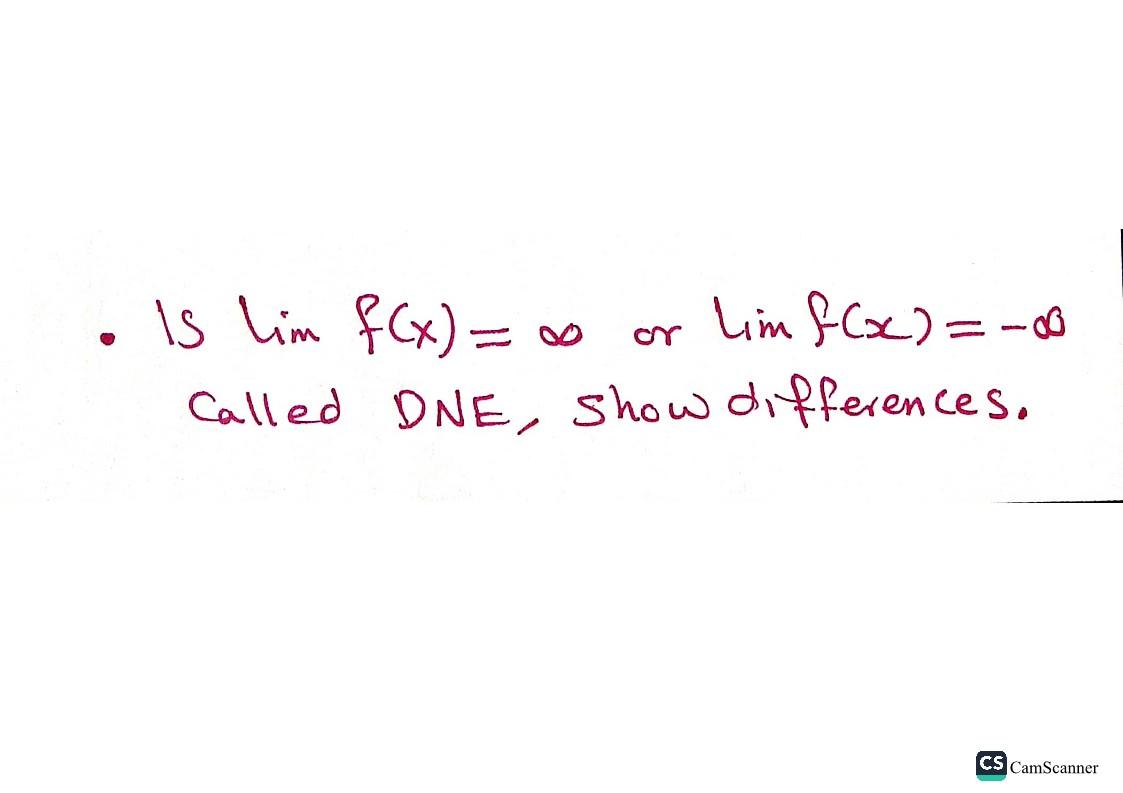 • Is lim f(x) = ∞ or lim f(x) = -∞
Called DNE, show differences.
CS CamScanner